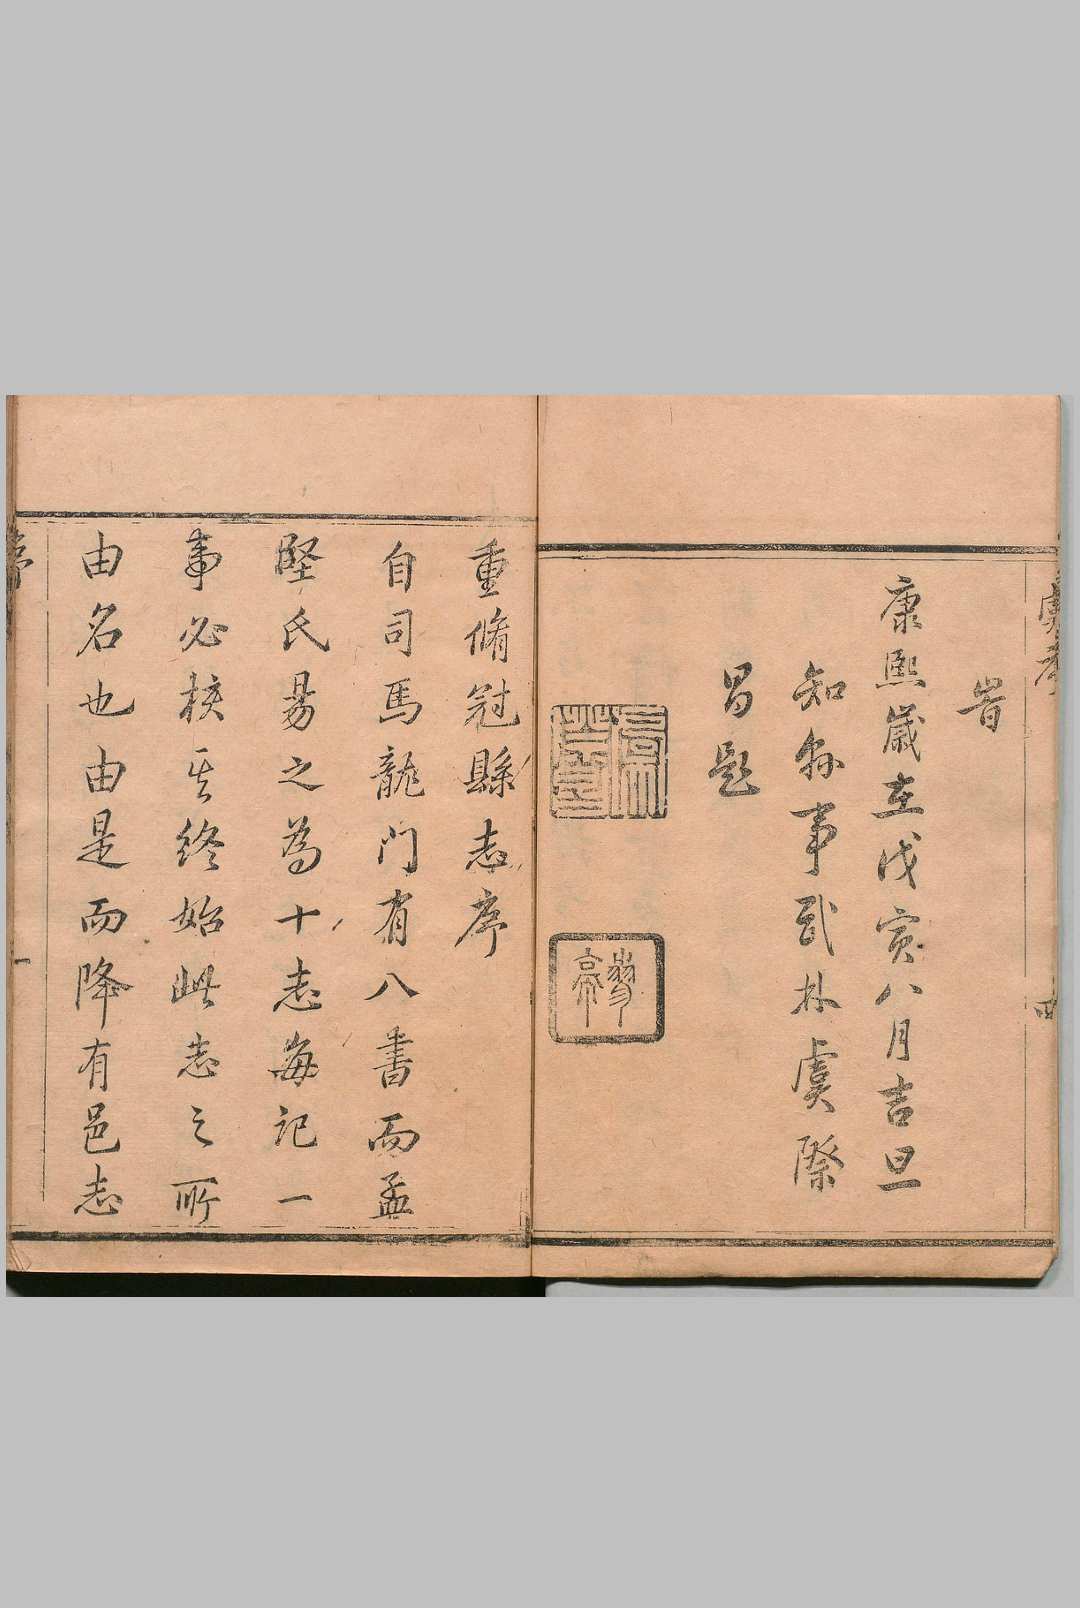 峕
康熙歲在戊寅八月吉旦
知縣事武林虞際
昌題
重脩冠縣志序
自司馬龍門有八書而孟
堅氏易之為十志每記一
事必核其終始此志之所
由名也由是而降有邑志